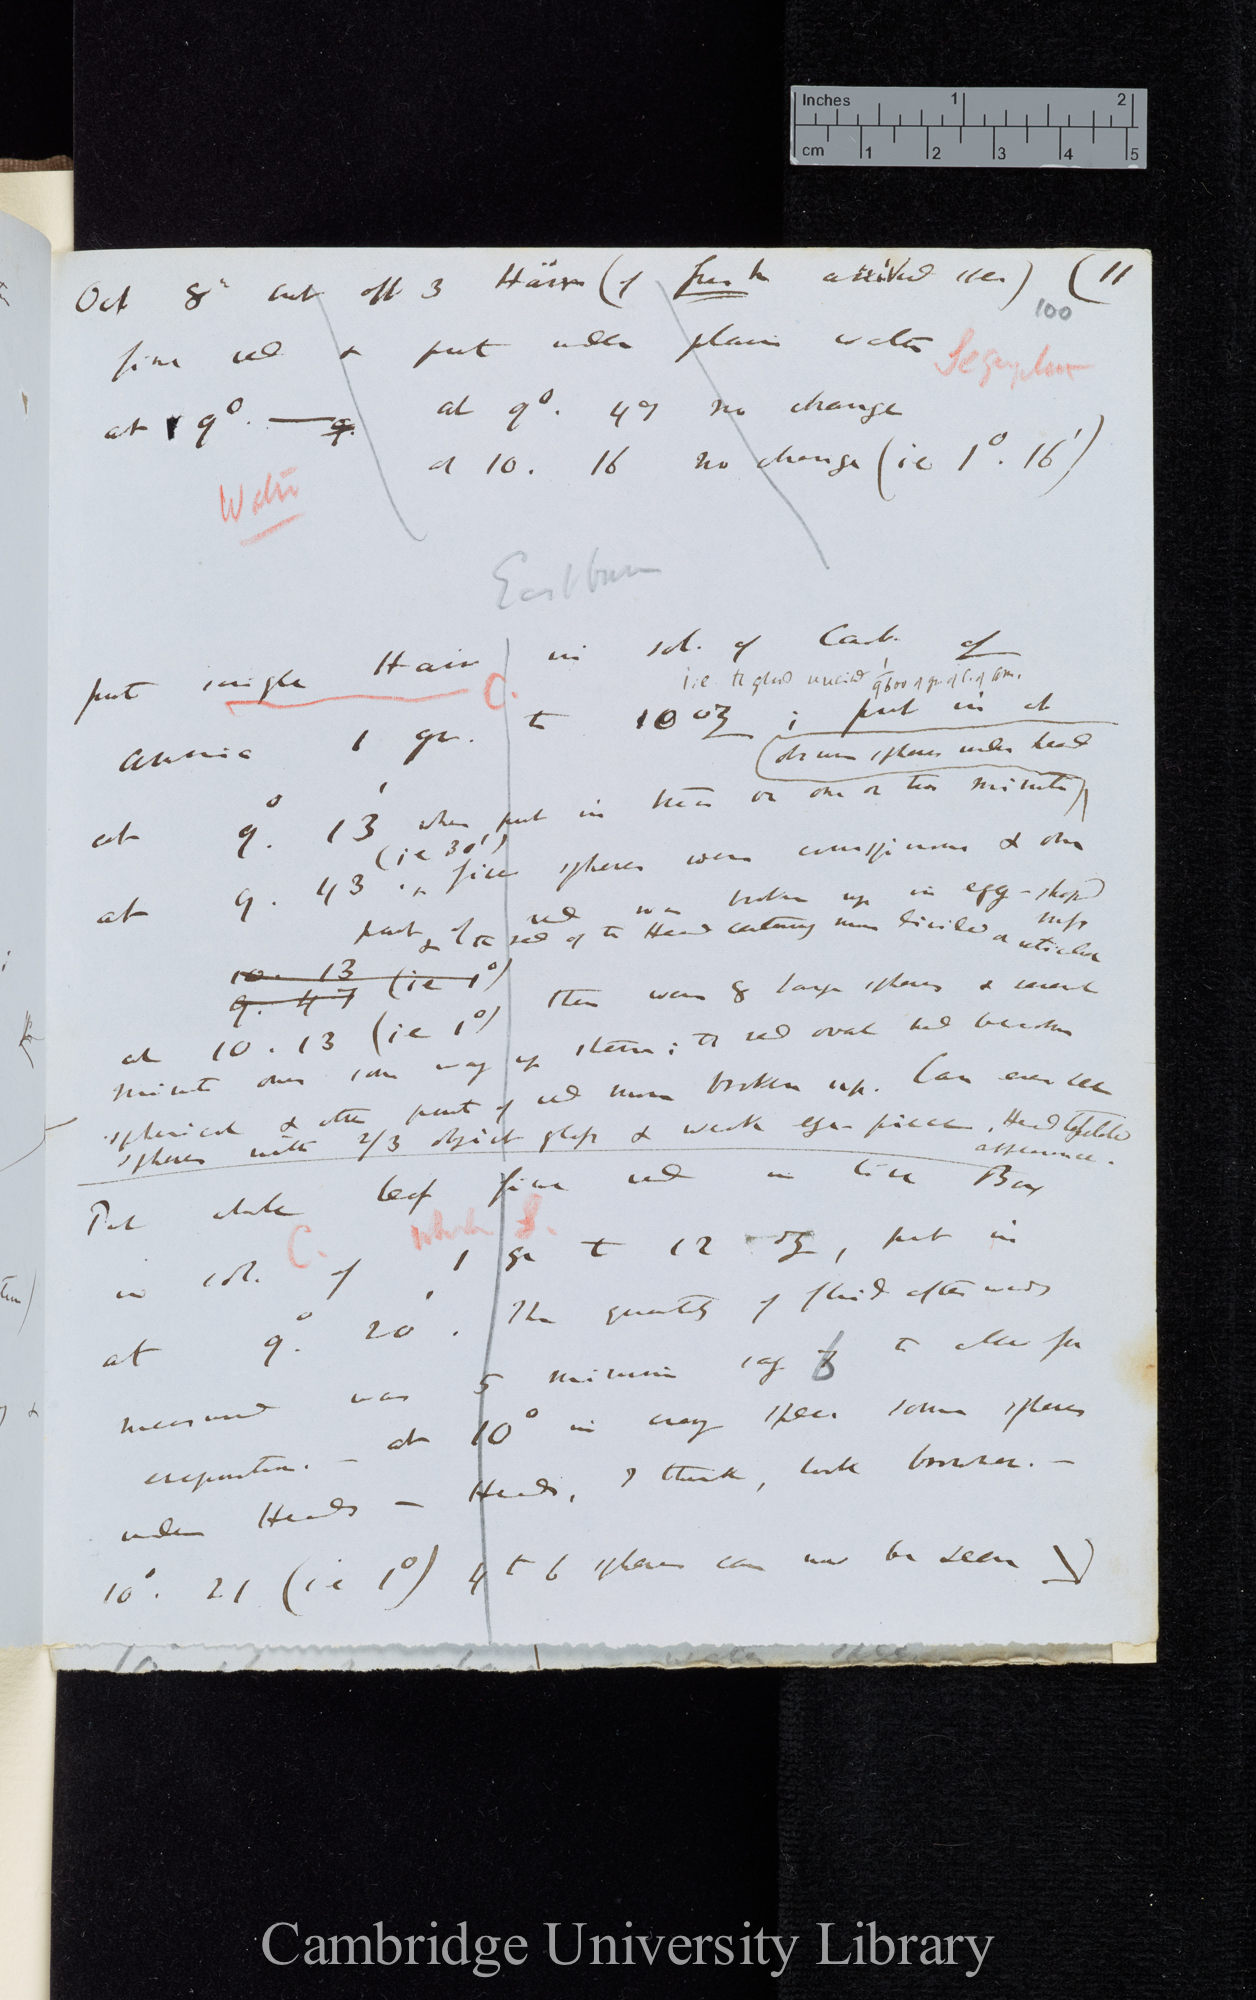 Oct 8th cut off 3 Hairs (of fresh arrived ones) (11
100
fine red & put under plain water
at 9°. — 9. at 9°. 49 no change
at 10. 16 no change (ie 1°. 16')
Water
Eastbourne
put single Hair in sol. of Carb. of
C.
i.e. the gland received 1/9600 of gr of C. of Am.
Ammonia 1 gr. to 10 oz ; put in at
(obscure spheres under head
at 9°. 13' when put in there or one or two minute)
(ie 30')
at 9. 43 fine spheres were conspicuous & one
part of red was broken up in egg-shaped
& the red of the Head certainly more divided
10. 13 (ie 1°)
9. 47
at 10. 13 (ie 1°) there were 8 large spheres & several
minute ones some way up stem ; the red oval had become
spherical & other part of red more broken up. Can even see
spheres with 2/3 object glass & weak eye-piece, Head
appearance.
Put whole leaf fine red in tin Box
C. whole L.
in sol. of 1 gr to 12 oz, put in
at 9°. 20'. The quantity of fluid afterwards
measured was 5 minims say 6 to allow for
evaporation. — at 10° in every species some spheres
under Heads — Heads, I think, look browner. —
10°. 21 (ie 1°) 4 to 6 spheres can now be seen
Inches 1 2
cm 1 2 3 4 5
Cambridge University Library